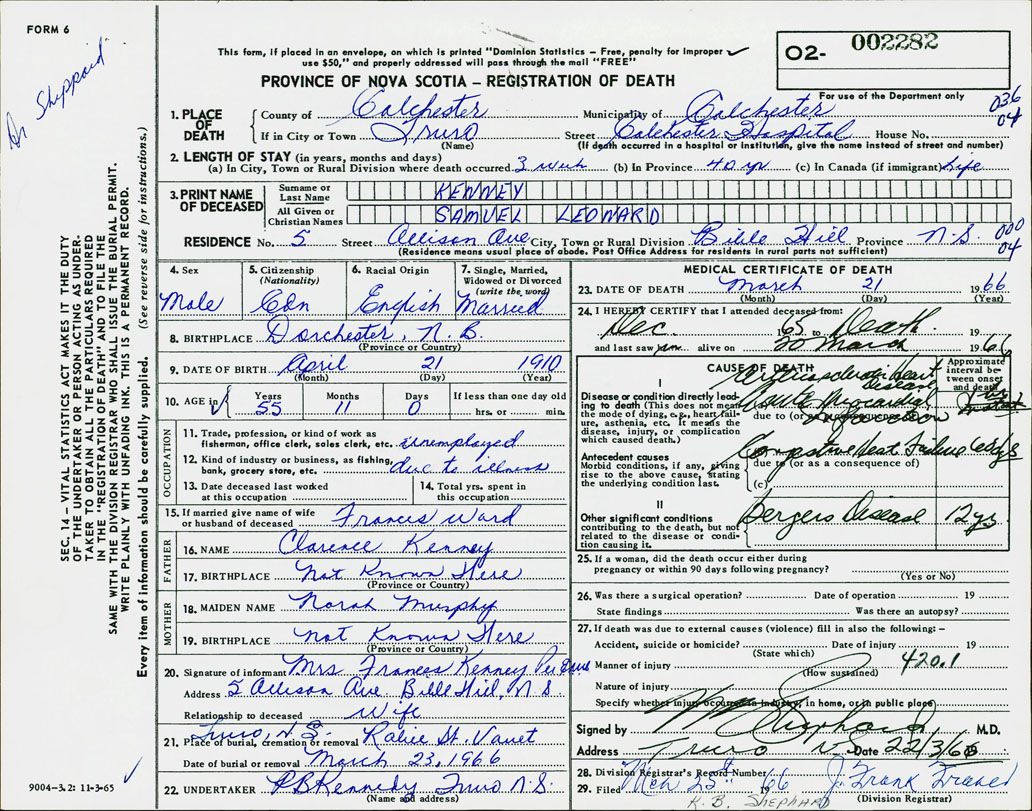 FORM 6
Dr Sheppard
This form, if placed in an envelope, on which is printed "Dominion Statistics – Free, penalty for improper
use $50," and properly addressed will pass through the mail "FREE"
PROVINCE OF NOVA SCOTIA – REGISTRATION OF DEATH
02- 002282
For use of the Department only
036
04
1. PLACE OF DEATH County of Colchester Municipality of Colchester
If in City or Town Truro Street Colchester Hospital House No.
(Name) (If death occurred in a hospital or institution, give the name instead of street and number)
2. LENGTH OF STAY (in years, months and days)
(a) In City, Town or Rural Division where death occurred 3 (b) In Province 40 yr (c) In Canada (if immigrant) Life
3. PRINT NAME OF DECEASED Surname or Last Name KENNEY
All Given or Christian Names SAMUEL LEONARD
RESIDENCE No. 5 Street Allison Ave City, Town or Rural Division Bible Hill Province N-S. 000
04
(Residence means usual place of abode. Post Office Address for residents in rural parts not sufficient)
SEC. 14 – VITAL STATISTICS ACT MAKES IT THE DUTY
OF THE UNDERTAKER OR PERSON ACTING AS UNDER-
TAKER TO OBTAIN ALL THE PARTICULARS REQUIRED
IN THE "REGISTRATION OF DEATH" AND TO FILE THE
SAME WITH THE DIVISION REGISTRAR WHO SHALL ISSUE THE BURIAL PERMIT.
WRITE PLAINLY WITH UNFADING INK. THIS IS A PERMANENT RECORD.
Every item of information should be carefully supplied. (See reverse side for instructions.)
4. Sex Male
5. Citizenship (Nationality) Cdn
6. Racial Origin English
7. Single, Married, Widowed or Divorced (write the word) Married
8. BIRTHPLACE Dorchester, N.B.
(Province or Country)
9. DATE OF BIRTH April 21 1910
(Month) (Day) (Year)
10. AGE in Years 55 Months 11 Days 0 If less than one day old
hrs. or min.
OCCUPATION
11. Trade, profession, or kind of work as
fisherman, office clerk, sales clerk, etc. unemployed
12. Kind of industry or business, as fishing,
bank, grocery store, etc. due to illness
13. Date deceased last worked
at this occupation
14. Total yrs. spent in
this occupation
15. If married give name of wife
or husband of deceased Frances Ward
FATHER
16. NAME Clarence Kenney
17. BIRTHPLACE Not Known Here
(Province or Country)
MOTHER
18. MAIDEN NAME Norah Murphy
19. BIRTHPLACE Not Known Here
(Province or Country)
20. Signature of informant Mrs Frances Kenney Per
Address 5 Allison Ave Bible Hill, N.S.
Relationship to deceased Wife
Truro, N.S.
21. Place of burial, cremation or removal
Date of burial or removal March 23, 1966
22. UNDERTAKER Kennedy Truro N.S.
(Name and address)
9004–3.2: 11-3-65
MEDICAL CERTIFICATE OF DEATH
23. DATE OF DEATH March 21 1966
(Month) (Day) (Year)
24. I HEREBY CERTIFY that I attended deceased from:
Dec. 1965 to Death 19
and last saw him alive on 20 March 1966
CAUSE OF DEATH
Approximate interval between onset and death
I
Disease or condition directly leading to death (This does not mean the mode of dying, e.g., heart failure, asthenia, etc. It means the disease, injury, or complication which caused death.)
Arteriosclerotic Heart Disease
Acute Myocardial
due to (or as a consequence of)
Infarction
Antecedent causes
Morbid conditions, if any, giving rise to the above cause, stating the underlying condition last.
Congestive Heart Failure
due to (or as a consequence of)
(c)
II
Other significant conditions
contributing to the death, but not related to the disease or condition causing it.
Bergers Disease 12 yrs
25. If a woman, did the death occur either during
pregnancy or within 90 days following pregnancy?
(Yes or No)
26. Was there a surgical operation? Date of operation 19
State findings Was there an autopsy?
27. If death was due to external causes (violence) fill in also the following:–
Accident, suicide or homicide? Date of injury 19
(State which)
Manner of injury 420.1
(How sustained)
Nature of injury
Specify whether injury occurred in industry, in home, or in public place
Signed by M.D.
Address Truro N.S. Date 22/3/66
28. Division Registrar's Record Number
29. Filed Mch 25th 1966 J. Frank
(Division Registrar)
K. B. SHEPHARD